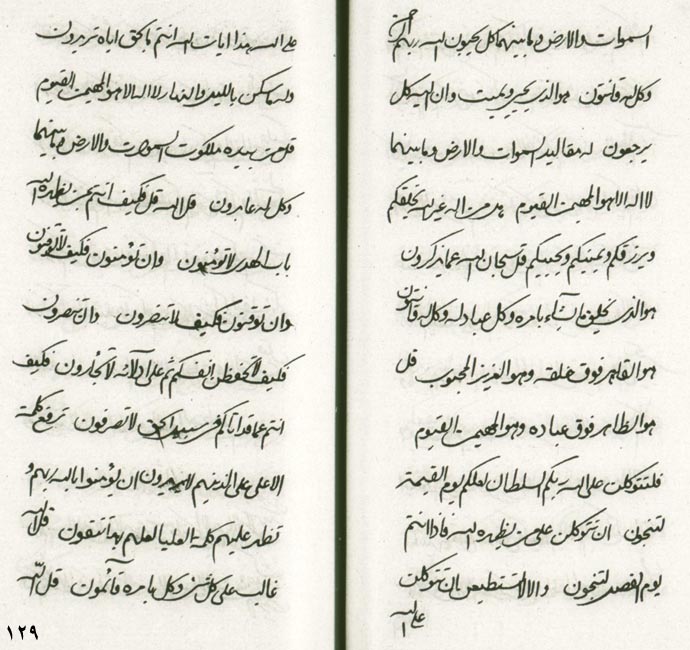 السموات والارض وما بينهما كل يحيون الله ربهم الرحمن
وكل له قانتون هو الذي يحيي ويميت وان اليه كل
يرجعون له مقاليد السموات والارض وما بينهما
لا اله الا هو المهيمن القيوم هل من اله غير الله يخلقكم
ويرزقكم ويميتكم ويحييكم قل سبحان الله عما يذكرون
هو الذي يخلق ما يشاء بامره وكل عباد له وكل له قانتون
هو القاهر فوق خلقه وهو العزيز المحبوب قل
هو الظاهر فوق عباده وهو المهيمن القيوم
فلتتوكلن على الله ربكم السلطان لعلكم يوم القيمة
لتنجون ان تتوكلن على من يظهره الله فاذا انتم
يوم الفصل لتنجون والا لا تستطيعن بان تتوكلن
على الله
على الله هذا ايات الله انتم بالحق اياه تريدون
وله ما سكن بالليل والنهار لا اله الا هو المهيمن القيوم
قل من بيده ملكوت السموات والارض وما بينهما
وكل له عابدون قل الله قل فكيف انتم بمن يظهره الله
باب الهدى لا تؤمنون وان تؤمنون فكيف لا توقنون
وان توقنون فكيف لا تنصرون وان تنصرون
فكيف لا تحفظن انفسكم ثم على ادلائه لا تحارون فكيف
انتم عما قد اتاكم في سبيل الحق لا تصرفون ترفع كلمة
الاعلى على الذينهم ان يؤمنوا بالله ربهم و
تظهر عليهم كلمة العليا لعلهم بهدا يتقون قل الله
غالب على كل شئ وكل بامره قائمون قل الله
١٢٩